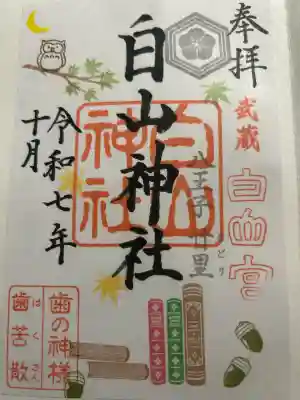 奉拝
武蔵
白山宮
八王子
白山神社
白山
神社
令和七年
十月
歯の神様
はくさん
歯苦散